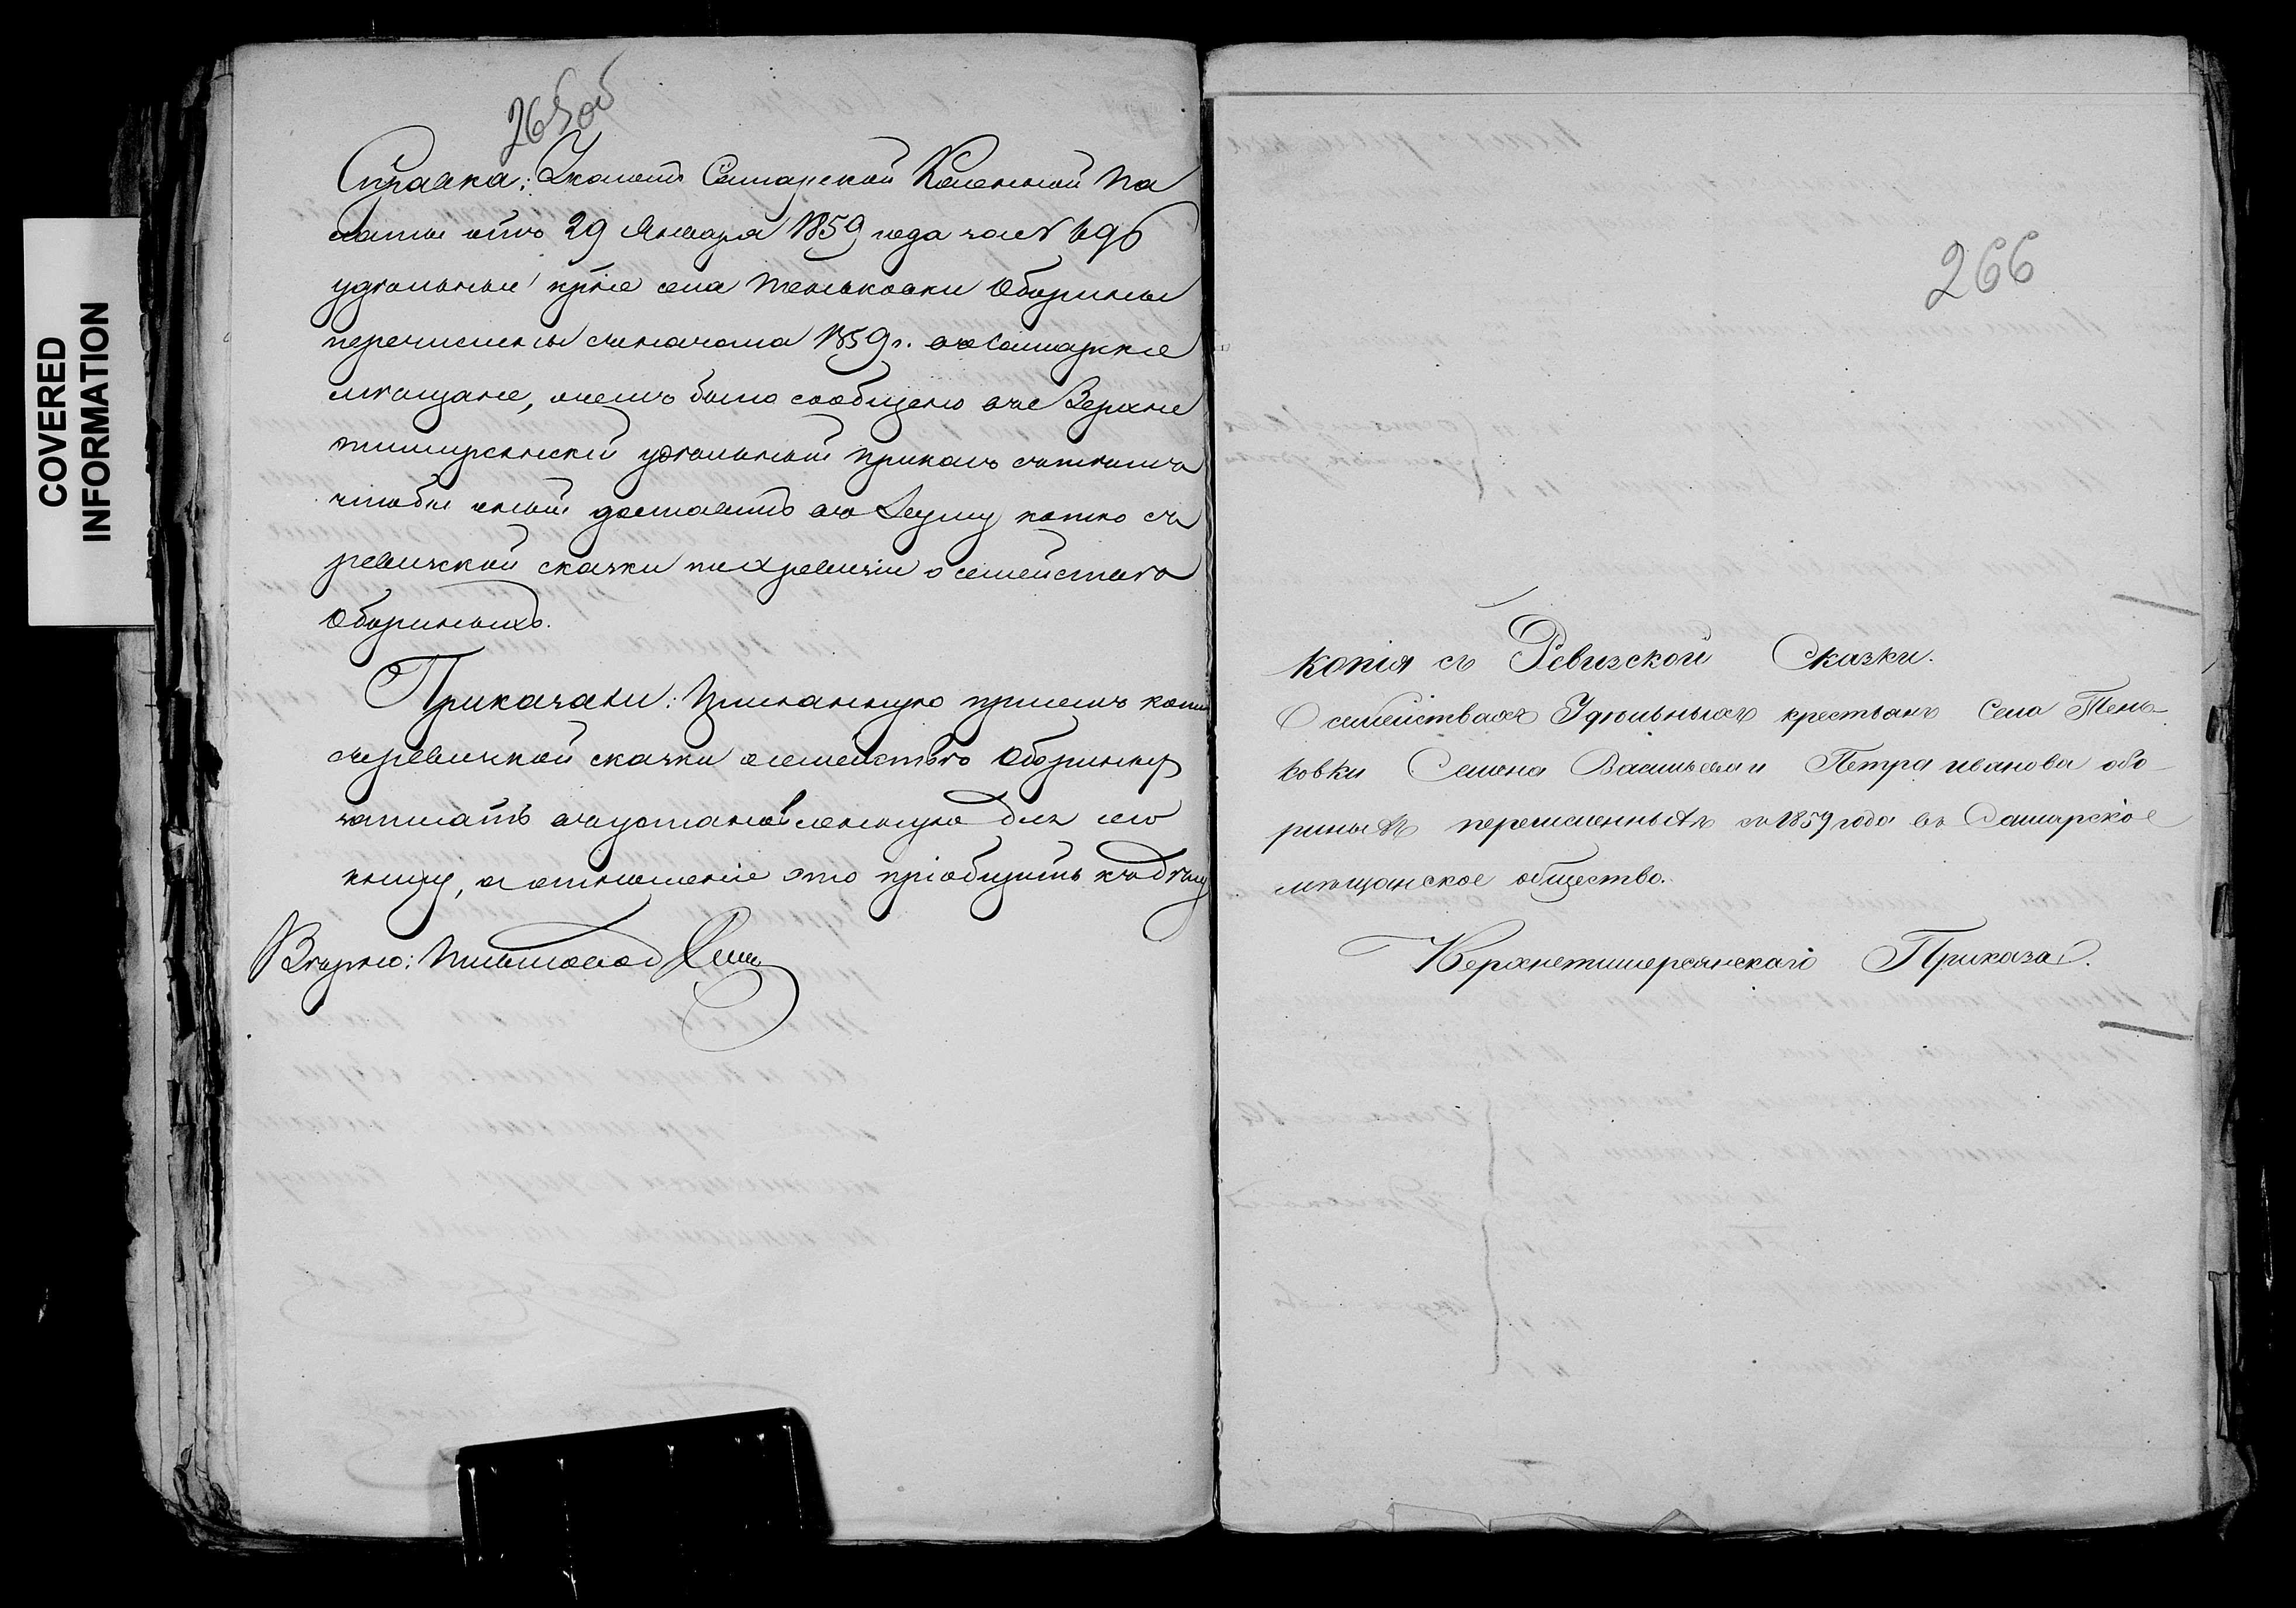 COVERED
INFORMATION
265об
Справка: Указомъ Самарской Казенной Па
латы отъ 29 Января 1859 года за №
удѣльные крне села Теньковки Оборины
перечислены съ начала 1859 г. въ Самаркіе
мѣщане, о чемъ было сообщено въ Верхне
тимерсянскій удѣльный приказъ съ тѣмъ
чтобы оный доставилъ въ Думу копію съ
ревизской сказки по Х ревизіи о семействѣ
Обориныхъ.
Приказали: Присланную при семъ копію
съ ревизской сказки о семействѣ Обориныхъ
записать въ установленную для сего
книгу, а отношеніе это пріобщить къ дѣлу
Вѣрно:
266
Копія съ Ревизской Сказки.
О семействахъ Удѣльныхъ крестьянъ Села Тень-
ковки Семена Васильева и Петра иванова обо-
риныхъ перечисленныхъ съ 1859 года въ Самарское
мѣщанское общество.
Верхнетимерсянскаго Приказа.